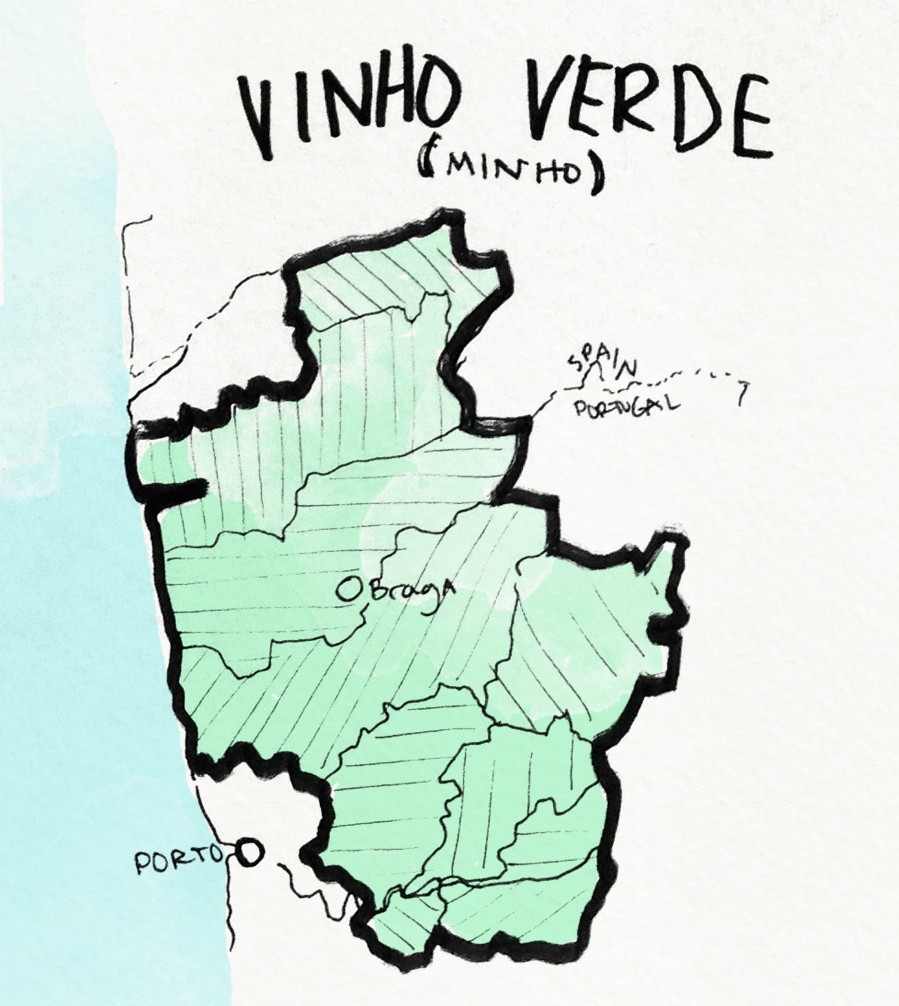 VINHO VERDE
(MINHO)
SPAIN
PORTUGAL
Braga
PORTO